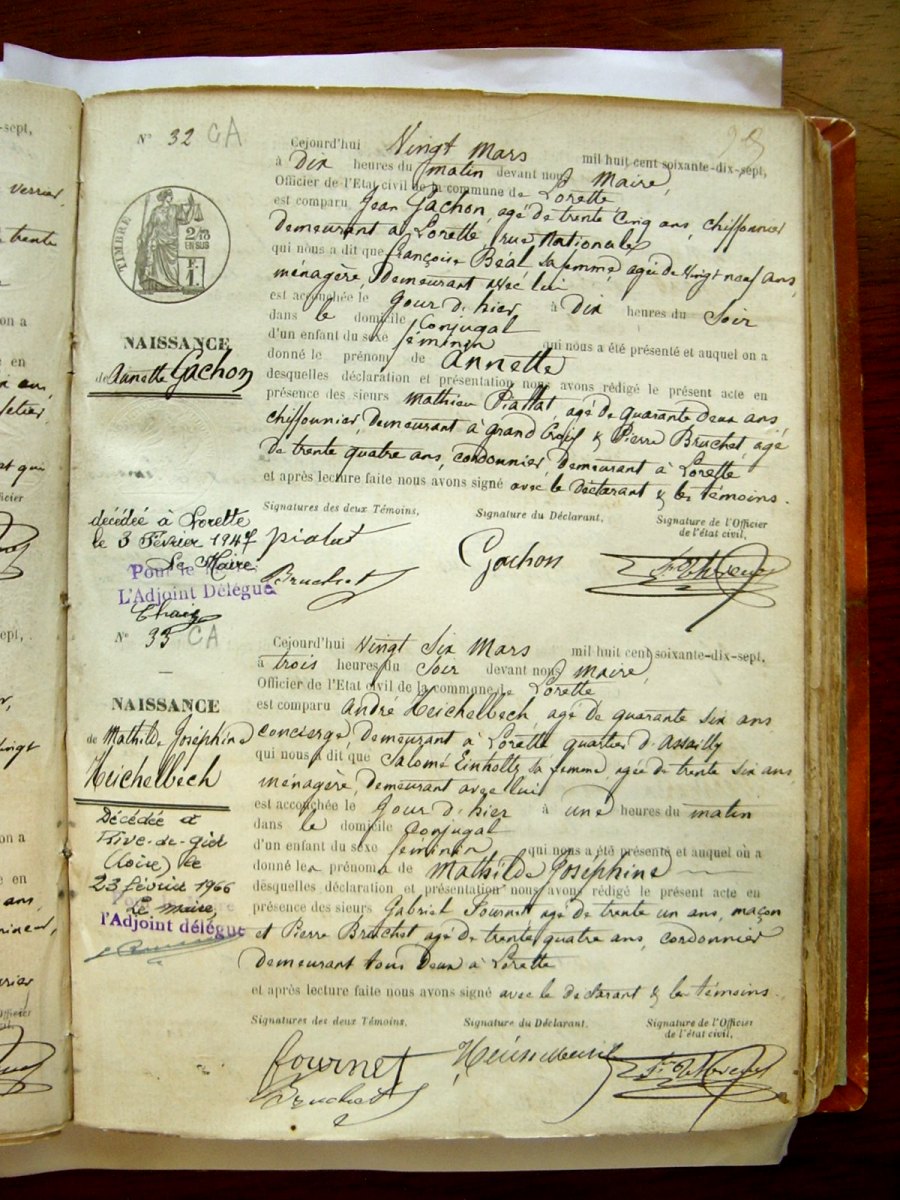 -sept,
verrier,
trente
on a
en
et qui
officier
sept,
vingt
on a
en
ans
N° 32 CA
TIMBRE
2/10
EN SUS
F.
1.
NAISSANCE
de Annette Gachon
décédée à Lorette
le 3 Février 1947
Le Maire
Pour le
L'Adjoint Délégué
Cejourd'hui Vingt Mars mil huit cent soixante-dix-sept,
à Dix heures du matin devant nous, Maire,
Officier de l'Etat civil de la commune de Lorette
est comparu Jean Gachon, agé de trente cinq ans, chiffonnier
demeurant à Lorette, rue Nationale
qui nous a dit que Françoise Béal sa femme, agée de vingt neuf ans,
ménagère, demeurant avec lui
est accouchée le Jour d'hier à Dix heures du Soir
dans le domicile Conjugal
d'un enfant du sexe féminin qui nous a été présenté et auquel on a
donné le prénom de Annette
desquelles déclaration et présentation nous avons rédigé le présent acte en
présence des sieurs Mathieu Piallat, agé de quarante deux ans
chiffonnier, demeurant à grand Croix & Pierre Bruchet agé
de trente quatre ans, cordonnier, demeurant à Lorette
et après lecture faite nous avons signé avec le déclarant & les témoins.
Signatures des deux Témoins, Signature du Déclarant, Signature de l'Officier
de l'état civil,
pialat Gachon
Bruchet
N° 33 CA
NAISSANCE
de Mathilde Joséphine
Heichelbech
Décédée à
Rive-de-Gier
(Loire) le
23 février 1966
Le maire,
l'Adjoint délégué
Cejourd'hui Vingt Six Mars mil huit cent soixante-dix-sept,
à trois heures du Soir devant nous, Maire,
Officier de l'Etat civil de la commune de Lorette
est comparu André Heichelbech, agé de quarante six ans
concierge, demeurant à Lorette quartier d'Assailly
qui nous a dit que Salomé Einholtz sa femme, agée de trente six ans
ménagère, demeurant avec lui
est accouchée le Jour d'hier à une heures du matin
dans le domicile Conjugal
d'un enfant du sexe féminin qui nous a été présenté et auquel on a
donné les prénoms de Mathilde Joséphine
desquelles déclaration et présentation nous avons rédigé le présent acte en
présence des sieurs Gabriel Fournet agé de trente un ans, maçon
et Pierre Bruchet agé de trente quatre ans, cordonnier
demeurant tous deux à Lorette
et après lecture faite nous avons signé avec le déclarant & les témoins.
Signatures des deux Témoins, Signature du Déclarant. Signature de l'Officier
de l'état civil,
fournet
Bruchet